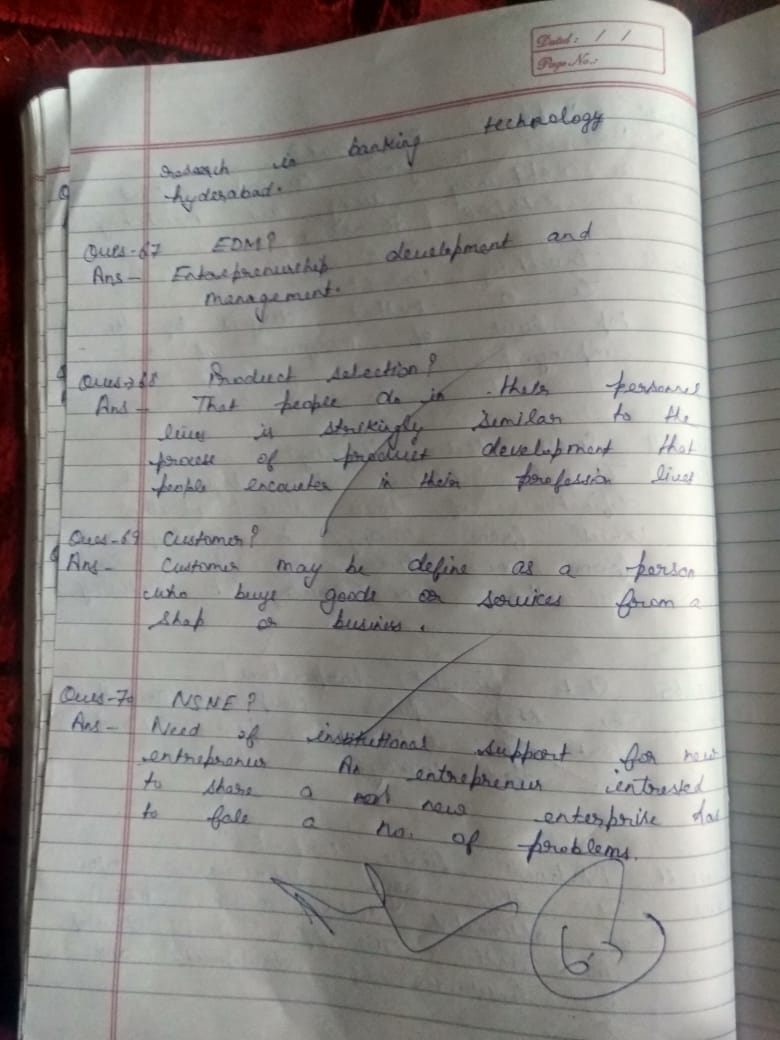 Dated: / /
Page No.:
research in banking technology
hyderabad.
Ques-67 EDM?
Ans- Entrepreneurship development and
management.
Ques-68 Product selection?
Ans- That people do in their personel
lives is strikingly similar to the
process of product development that
people encounter in their profession lives
Ques-69 Customer?
Ans- Customer may be define as a person
who buys goods or services from a
shop or business.
Ques-70 NSNE?
Ans- Need of institutional support for new
entrepreneur An entrepreneur intrested
to share a new enterprise has
to fale a no. of problems.